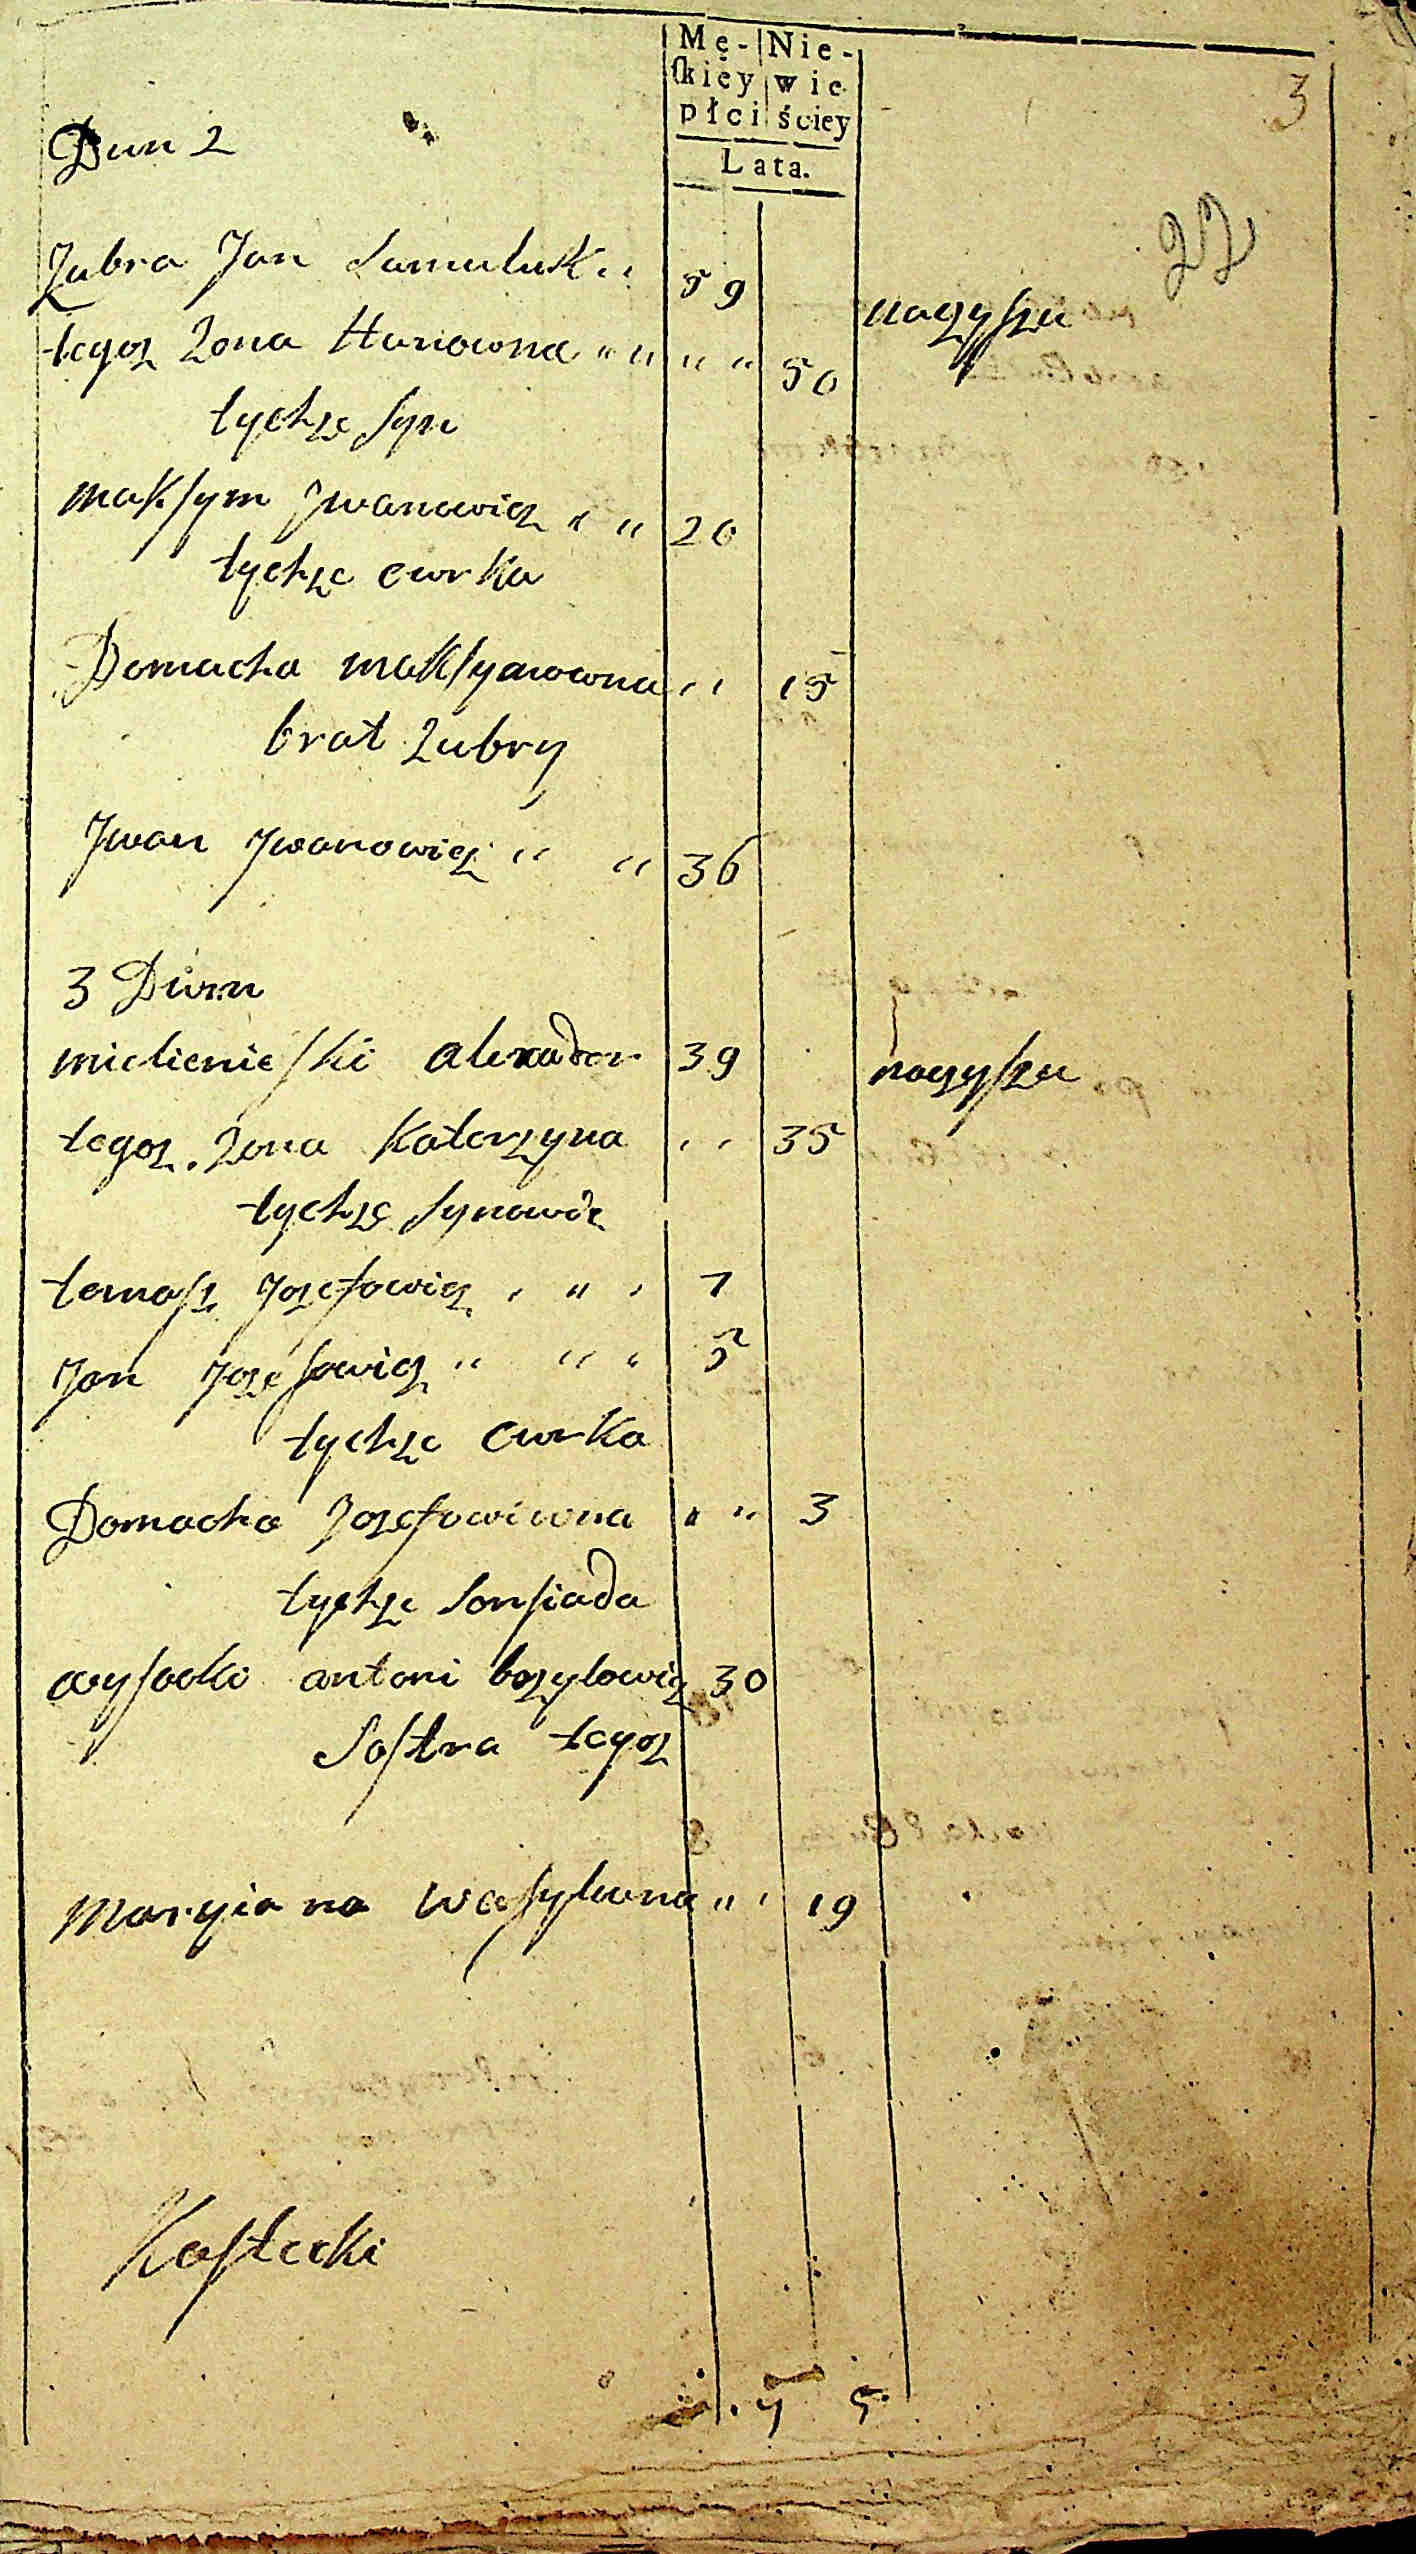 Mę- Nie-
skiéy wie
płci ściey
Lata.
3
22
Dum 2
Zubra Jan " 59
nazyszu
tegoz Zona Hanowna " " " " 50
tychze syn
maksym Jwanowicz " " 20
tychze curka
Domacha maksymowna " 15
brat Zubry
Jwan Jwanowicz " " 36
3 Dum
alexader 39
nazyszu
tegoz Zona Katerzyna " 35
tychze synowie
tomasz Jozefowicz " " " 7
Jan Jozefowicz " " " 5
tychze curka
Domacha Jozefowiwna " " 3
tychze sonsiada
wysocki antoni bazylowicz 30
Sostra tegoz
maryia na wasyluwna " " 19
Kostecki
7 5